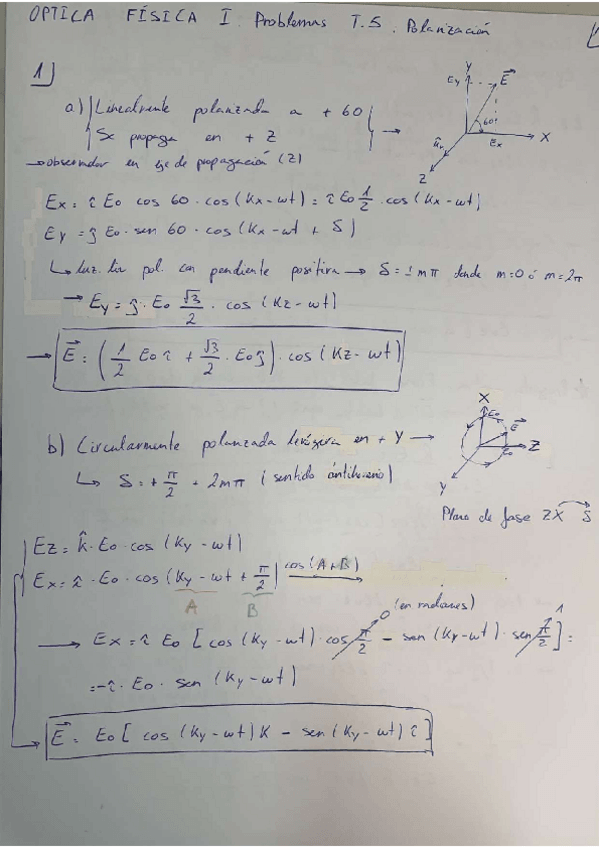 OPTICA FÍSICA I. Problemas T.5. Polarización
1)
a) Linealmente polarizada a + 60
Se propaga en + Z
→ observador en eje de propagación (Z)
Y
Ey
E⃗
60º
X
Ex
Z
Ex = î E0 cos 60 · cos(Kx - wt) = î E0 1/2 · cos(Kx - wt)
Ey = ĵ E0 · sen 60 · cos(Kx - wt + δ)
↳ luz lin pol. con pendiente positiva → δ = ± mπ donde m=0 ó m=2π
→ Ey = ĵ · E0 √3/2 · cos(Kz - wt)
→ E⃗ = (1/2 E0 î + √3/2 · E0 ĵ) · cos(Kz - wt)
b) Circularmente polarizada levógira en + Y →
↳ δ = + π/2 + 2mπ (sentido antihorario)
X
E0
E⃗
Z
E0
Y
Plano de fase ZX
Ez = k̂ · E0 · cos(Ky - wt)
Ex = î · E0 · cos(Ky - wt + π/2) cos(A+B) →
A B
(en radianes)
→ Ex = î E0 [cos(Ky - wt) · cos π/2 0 - sen(Ky - wt) · sen π/2 1] =
= -î · E0 · sen(Ky - wt)
E⃗ = E0 [cos(Ky - wt) K - sen(Ky - wt) î]